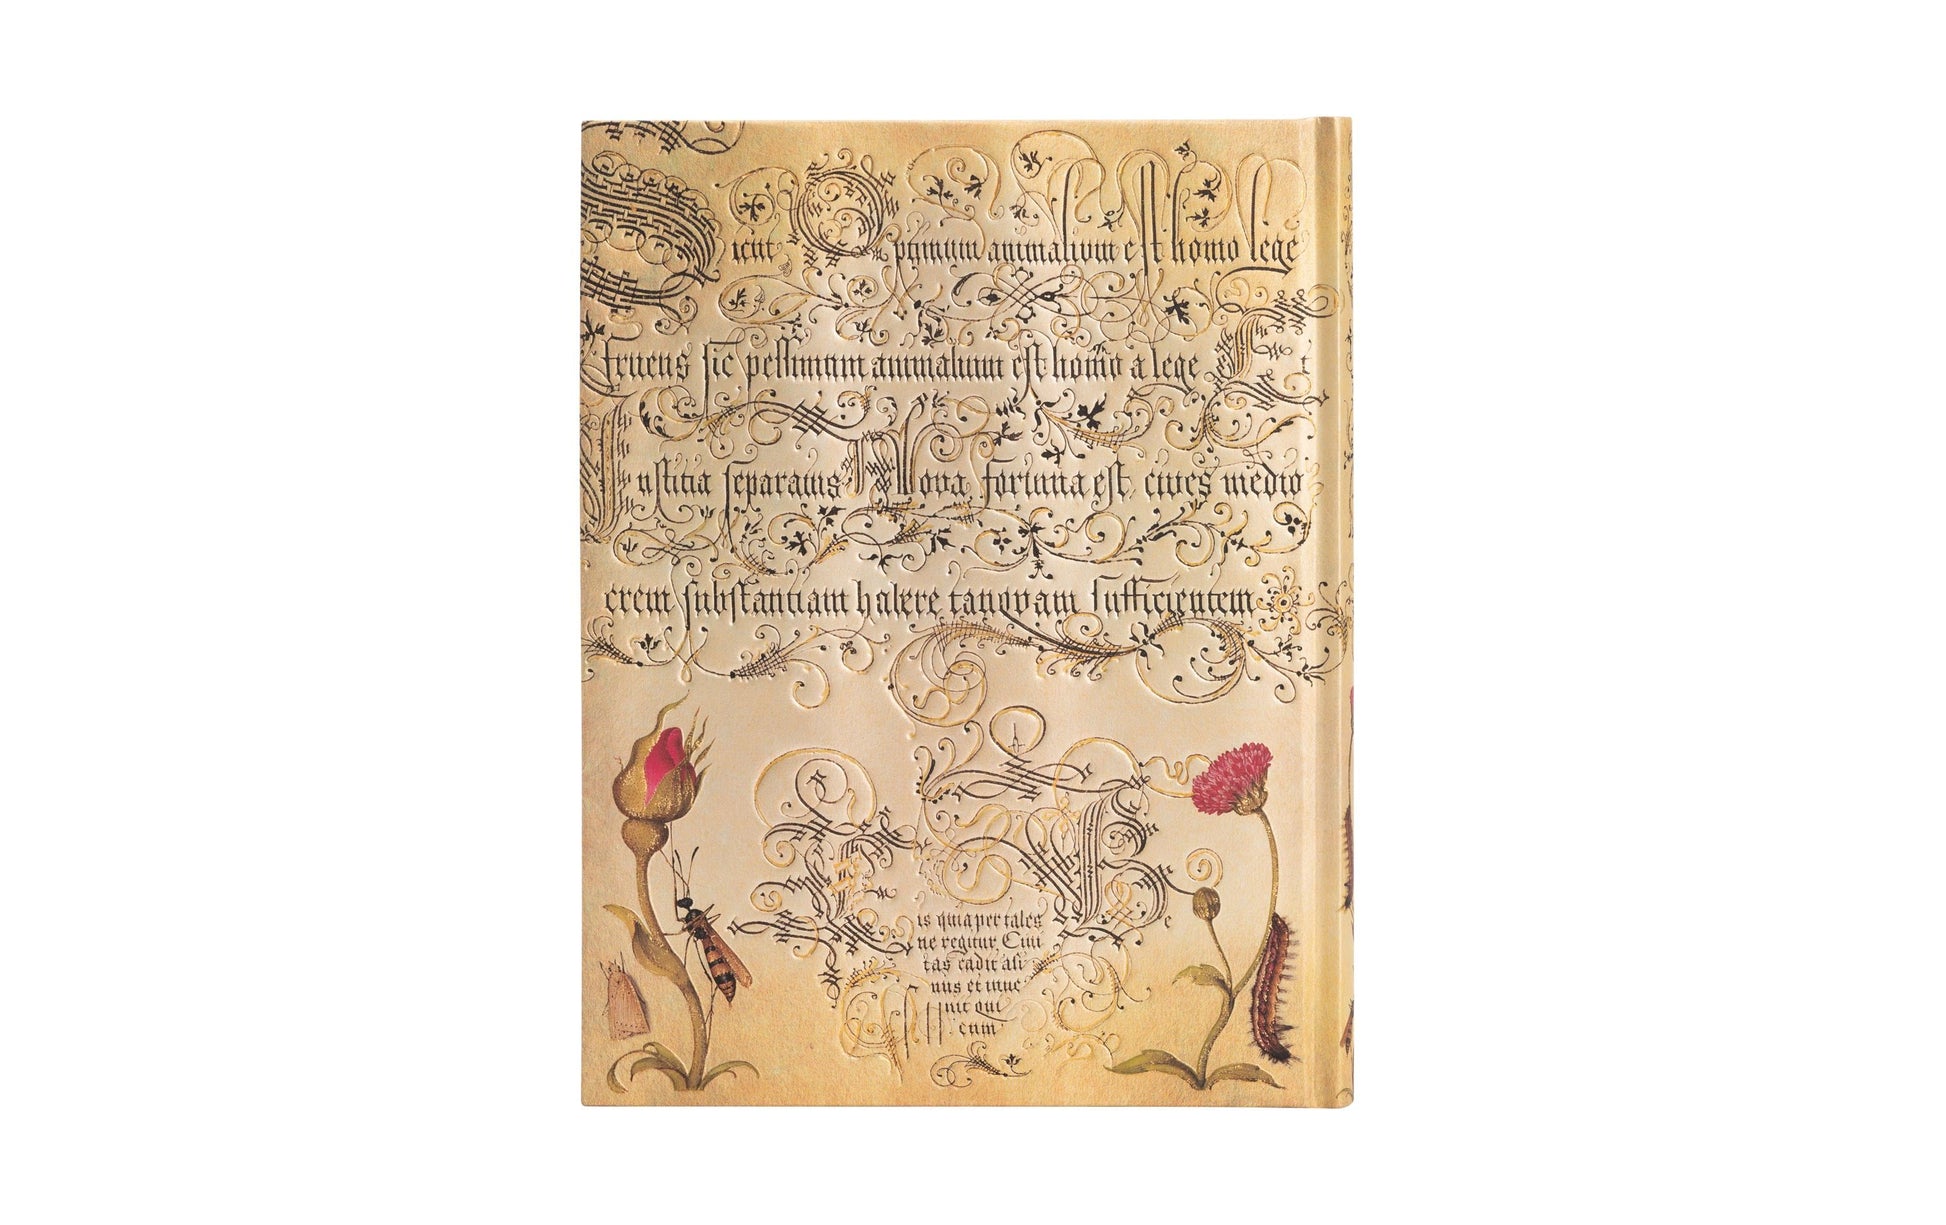 Sicut Optimum animalium est homo lege
fruens sic pessimum animalium est homo a lege Et
Iustitia separatus Nova fortuna est, cives medio
crem substantiam habere tanquam sufficientem
His quia per tales Be
ne regitur, Civi
tas cadit asi
nus et inve
nit qui
eum